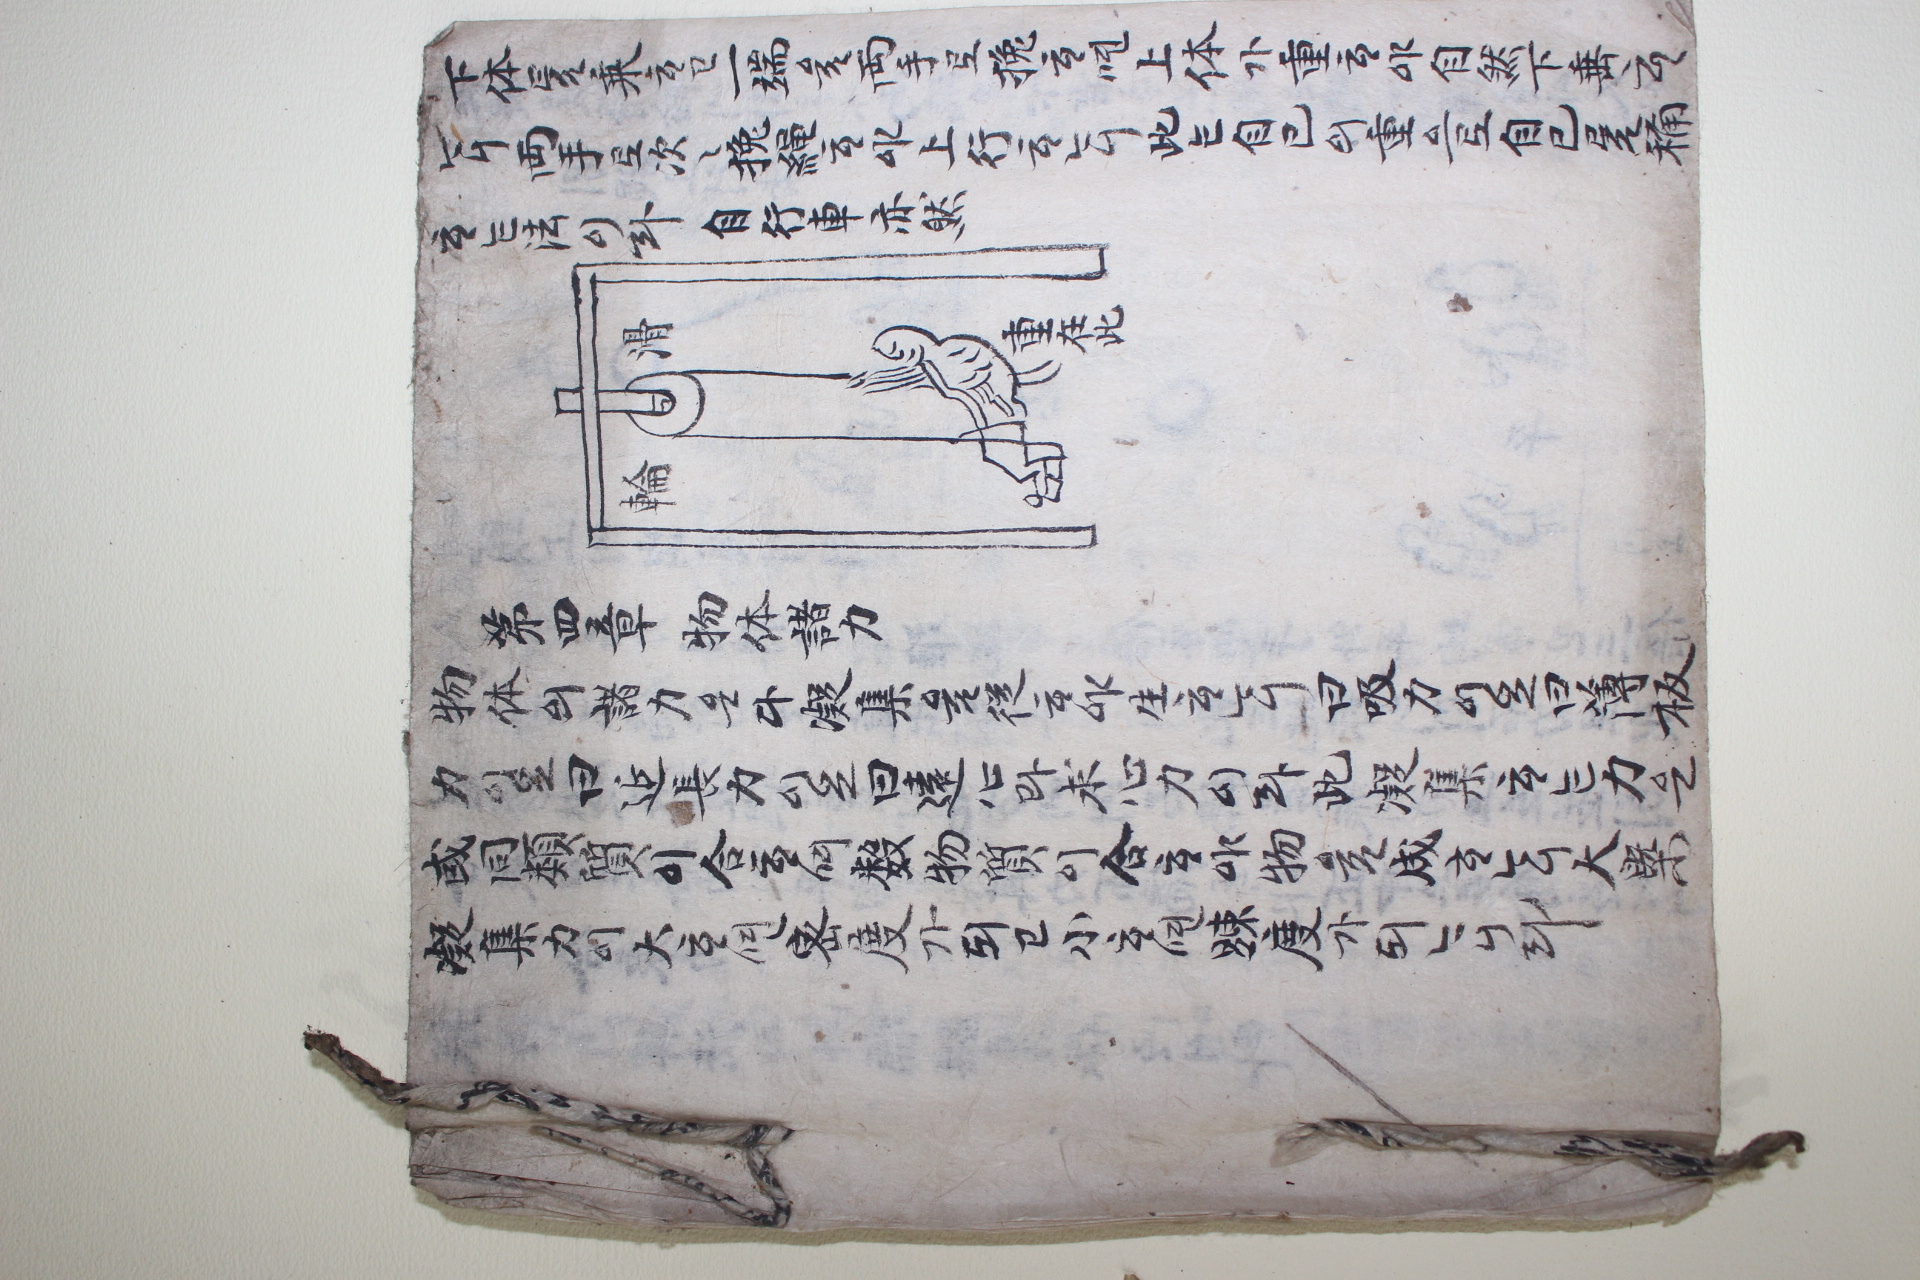 下体를乗ᄒᆞ고一端을両手로挽ᄒᆞ면上体가重ᄒᆞ야自然下垂ᄒᆞ
ᄂᆞ니両手로次々挽繩ᄒᆞ야上行ᄒᆞᄂᆞ니此ᄂᆞᆫ自己의重으로自己를称
ᄒᆞᄂᆞᆫ法이라 自行車亦然
滑
輪
重在此
第四章 物体諸力
物体의諸力은다凝集을從ᄒᆞ야生ᄒᆞᄂᆞ니曰吸力이오曰薄板
力이오曰近長力이오曰遠心과求心力이라此凝集ᄒᆞᄂᆞᆫ力은
或同類質이合ᄒᆞ며数物質이合ᄒᆞ야物을成ᄒᆞᄂᆞ니大槩
凝集力이大ᄒᆞ면密度가되고小ᄒᆞ면踈度가되ᄂᆞ니라